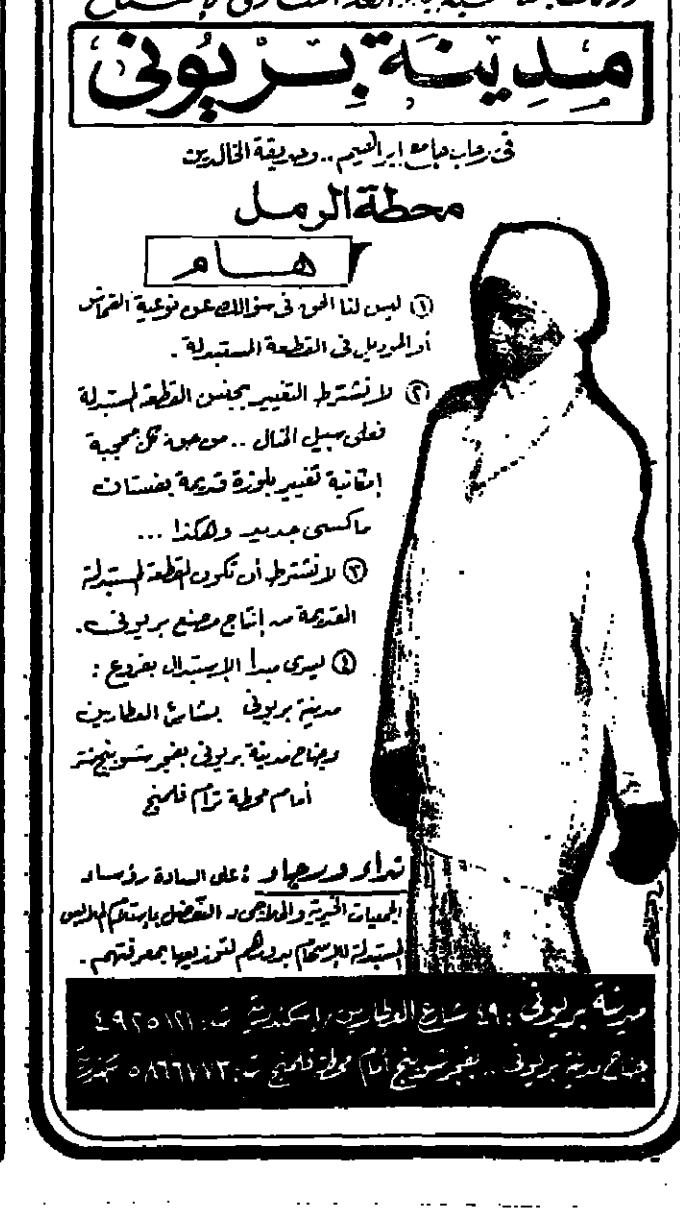 مدينة بريونى
فى رحاب جامع إبراهيم .. وحديقة الخالدين
محطة الرمل
هــام
① ليس لنا الحق فى سؤالك عن نوعية القماش
أو الموديل فى القطعة المستبدلة .
② لا نشترط التغيير بجنس القطعة المستبدلة
فعلى سبيل المثال .. من حق كل محجبة
إمكانية تغيير بلوزة قديمة بفستان
ماكسى جديد وهكذا ...
③ لا نشترط أن تكون القطعة المستبدلة
القديمة من إنتاج مصنع بريونى .
④ يسرى مبدأ الإستبدال بفروع :
مدينة بريونى بشارع العطارين
وجناح مدينة بريونى بفجر شوبنج سنتر
أمام محطة ترام فلمنج
نداء ورجاء : على السادة رؤساء
الجمعيات الخيرية والملاجئ التفضل بإستلام الملابس
المستبدلة للإسهام بدورهم لتوزيعها بمعرفتهم .
مدينة بريونى : ٤٩ شارع العطارين / إسكندرية ت : ٤٩٢٥١٢١
جناح مدينة بريونى .. بفجر شوبنج أمام محطة فلمنج ت : ٥٨٦٦٧٧٣